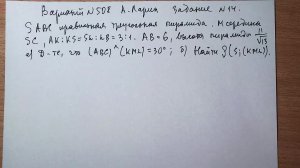 Вариант № 508 А. Ларин Задание № 14.
SABC правильная треугольная пирамида. M середина
SC, AK:KS = SL:LB = 3:1. AB = 6, высота пирамиды 11/√13
а) Д-ть, что (ABC)^(KML) = 30°; б) Найти ρ(S;(KML)).